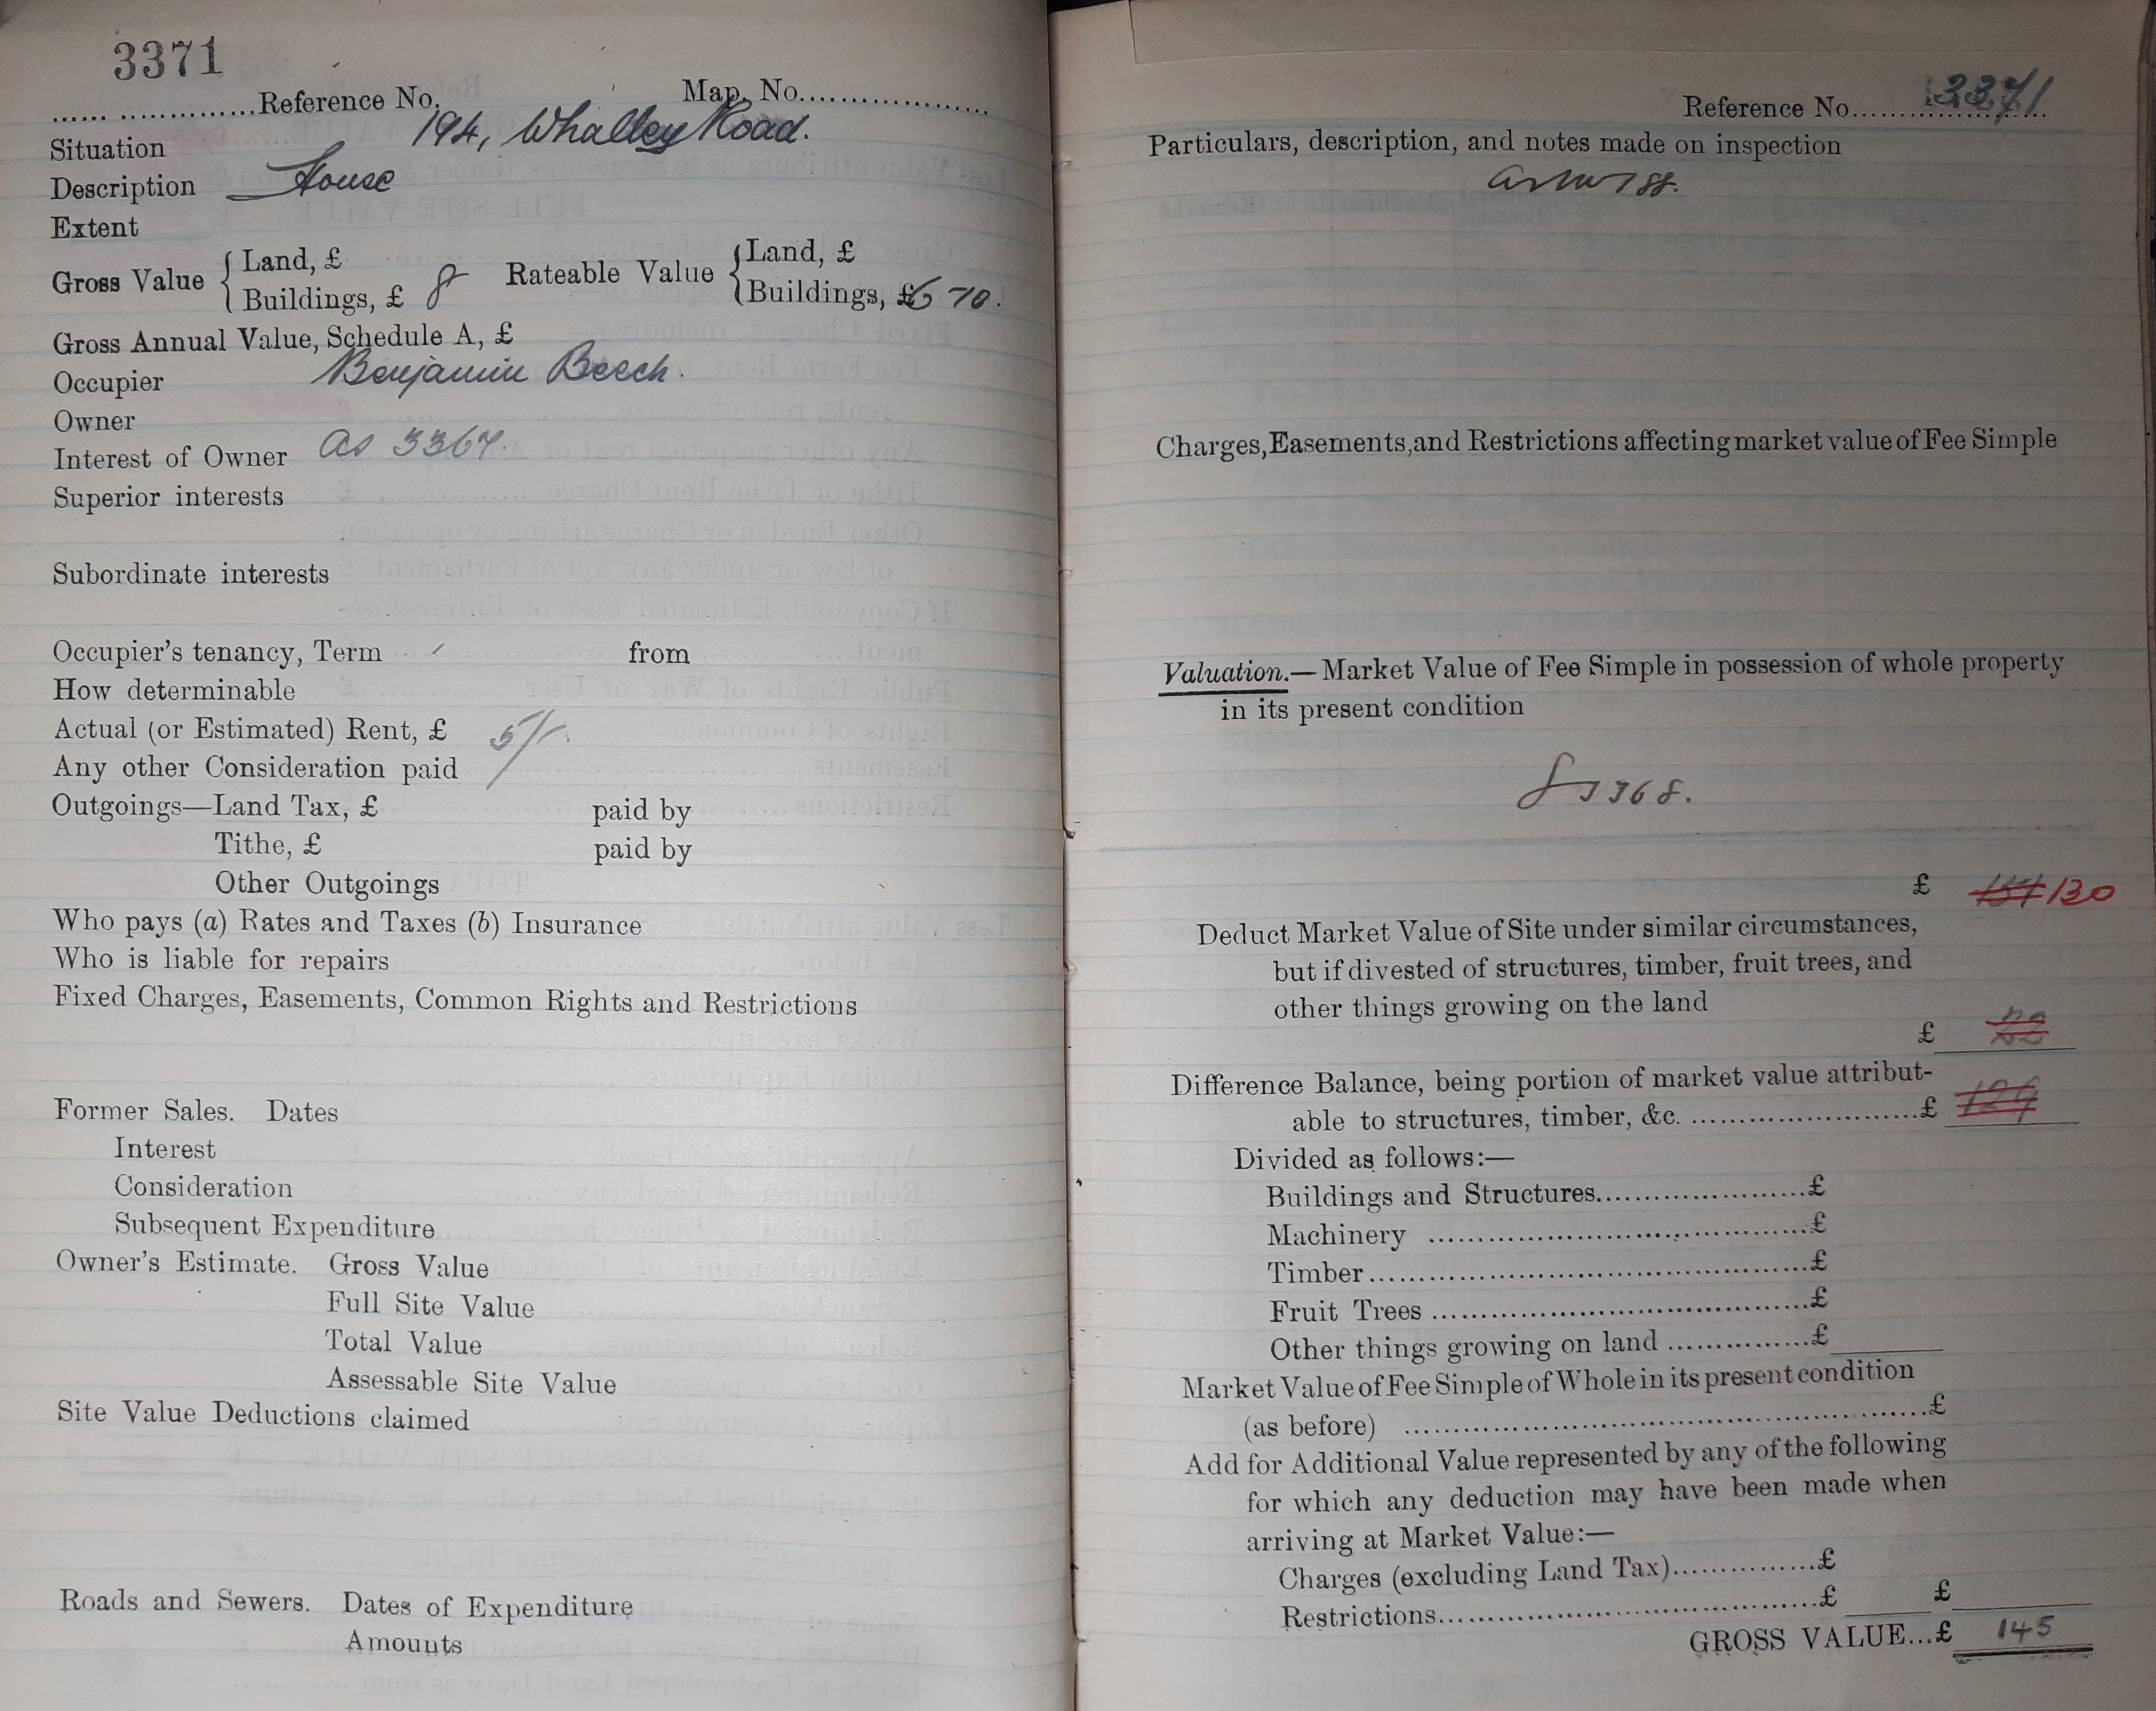 3371
Reference No. Map. No.
Situation 194, Whalley Road.
Description House
Extent
Gross Value { Land, £ Rateable Value { Land, £
Buildings, £ 8 Buildings, £ 6 10.
Gross Annual Value, Schedule A, £
Occupier Benjamin Beech.
Owner
Interest of Owner as 3367.
Superior interests
Subordinate interests
Occupier's tenancy, Term from
How determinable
Actual (or Estimated) Rent, £ 5/-.
Any other Consideration paid
Outgoings—Land Tax, £ paid by
Tithe, £ paid by
Other Outgoings
Who pays (a) Rates and Taxes (b) Insurance
Who is liable for repairs
Fixed Charges, Easements, Common Rights and Restrictions
Former Sales. Dates
Interest
Consideration
Subsequent Expenditure
Owner's Estimate. Gross Value
Full Site Value
Total Value
Assessable Site Value
Site Value Deductions claimed
Roads and Sewers. Dates of Expenditure
Amounts
Reference No. 3371
Particulars, description, and notes made on inspection
Charges, Easements, and Restrictions affecting market value of Fee Simple
Valuation.—Market Value of Fee Simple in possession of whole property
in its present condition
£ 130
Deduct Market Value of Site under similar circumstances,
but if divested of structures, timber, fruit trees, and
other things growing on the land
£
Difference Balance, being portion of market value attribut-
able to structures, timber, &c. £
Divided as follows:—
Buildings and Structures £
Machinery £
Timber £
Fruit Trees £
Other things growing on land £
Market Value of Fee Simple of Whole in its present condition
(as before) £
Add for Additional Value represented by any of the following
for which any deduction may have been made when
arriving at Market Value:—
Charges (excluding Land Tax) £
Restrictions £ £
GROSS VALUE...£ 145